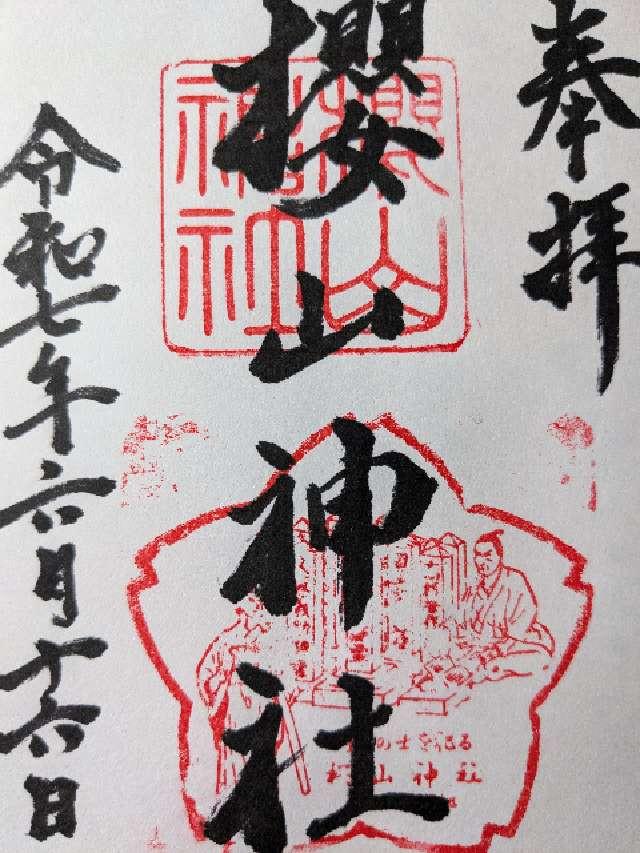 奉拝
櫻山神社
櫻山神社
の士を祀る
山神社
令和七年六月十六日